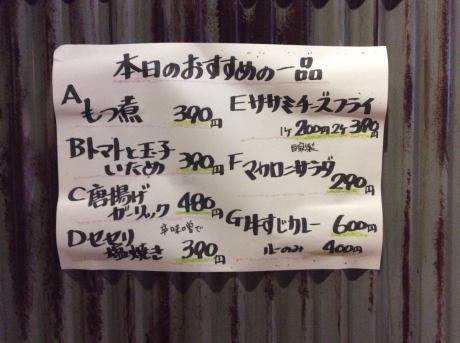 本日のおすすめの一品
A もつ煮 390円
B トマトと玉子
いため 390円
C 唐揚げ
ガーリック 480円
辛味噌で
D セセリ
塩焼き 390円
E ササミチーズフライ
1ケ 200円 2ケ 390円
自家製
F マカロニサラダ
290円
G 牛すじカレー 600円
ルーのみ 400円